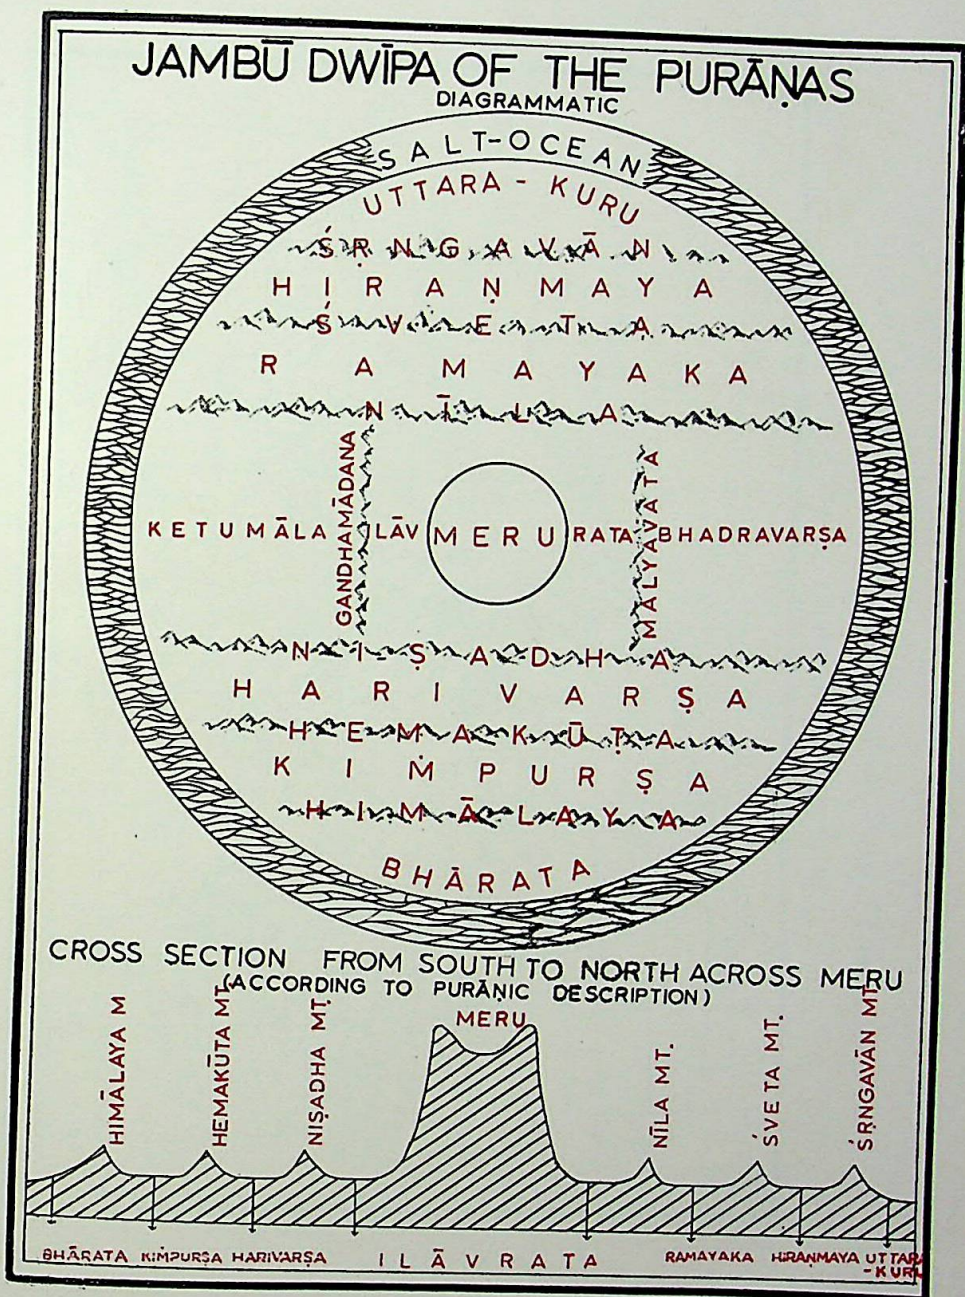 JAMBŪ DWĪPA OF THE PURĀṆAS
DIAGRAMMATIC
SALT-OCEAN
UTTARA - KURU
ŚṚNGAVĀN
HIRAṆMAYA
ŚVETA
RAMAYAKA
NĪLA
GANDHAMĀDANA
MĀLYAVATA
KETUMĀLA ILĀV MERU RATA BHADRAVARṢA
NIṢADHA
HARIVARṢA
HEMAKŪṬA
KIṀPURṢA
HIMĀLAYA
BHĀRATA
CROSS SECTION FROM SOUTH TO NORTH ACROSS MERU
(ACCORDING TO PURĀṆIC DESCRIPTION)
MERU
HIMĀLAYA M
HEMAKŪTA MT.
NIṢADHA MT.
NĪLA MT.
ŚVETA MT.
ŚṚNGAVĀN MT
BHĀRATA KIṀPURṢA HARIVARṢA ILĀVRATA RAMAYAKA HIRANMAYA UTTARA
-KURU